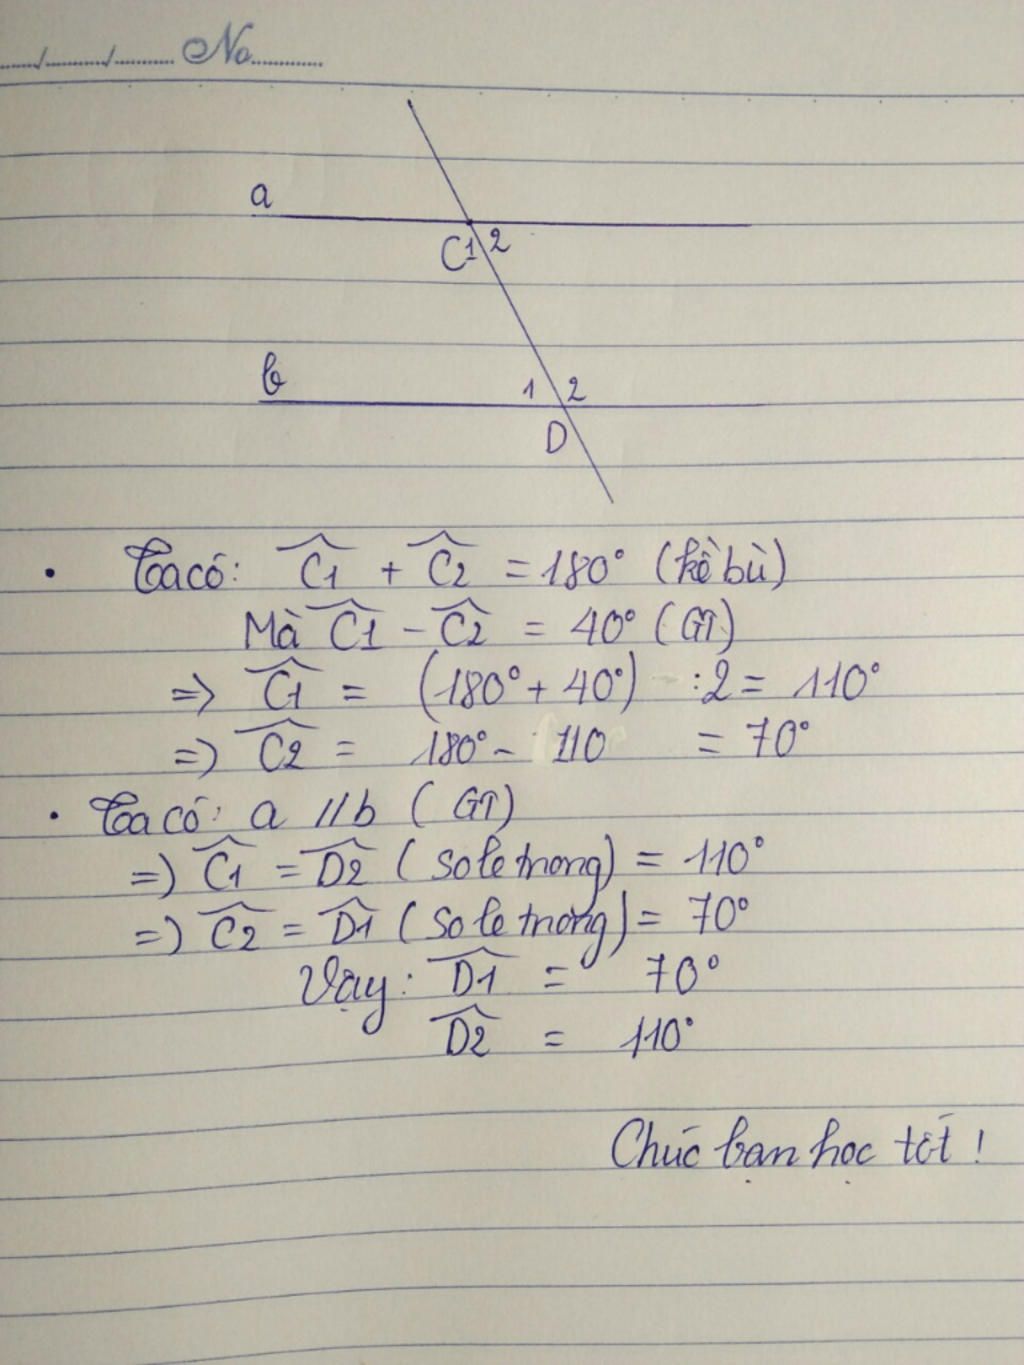 ..../........../.......... No...........
a
C1 2
b
1 2
D
• Ta có: Ĉ1 + Ĉ2 = 180° (kề bù)
Mà Ĉ1 - Ĉ2 = 40° (GT)
=> Ĉ1 = (180° + 40°) :2 = 110°
=> Ĉ2 = 180° - 110 = 70°
• Ta có: a // b (GT)
=> Ĉ1 = D̂2 (so le trong) = 110°
=> Ĉ2 = D̂1 (so le trong) = 70°
Vậy: D̂1 = 70°
D̂2 = 110°
Chúc bạn học tốt !